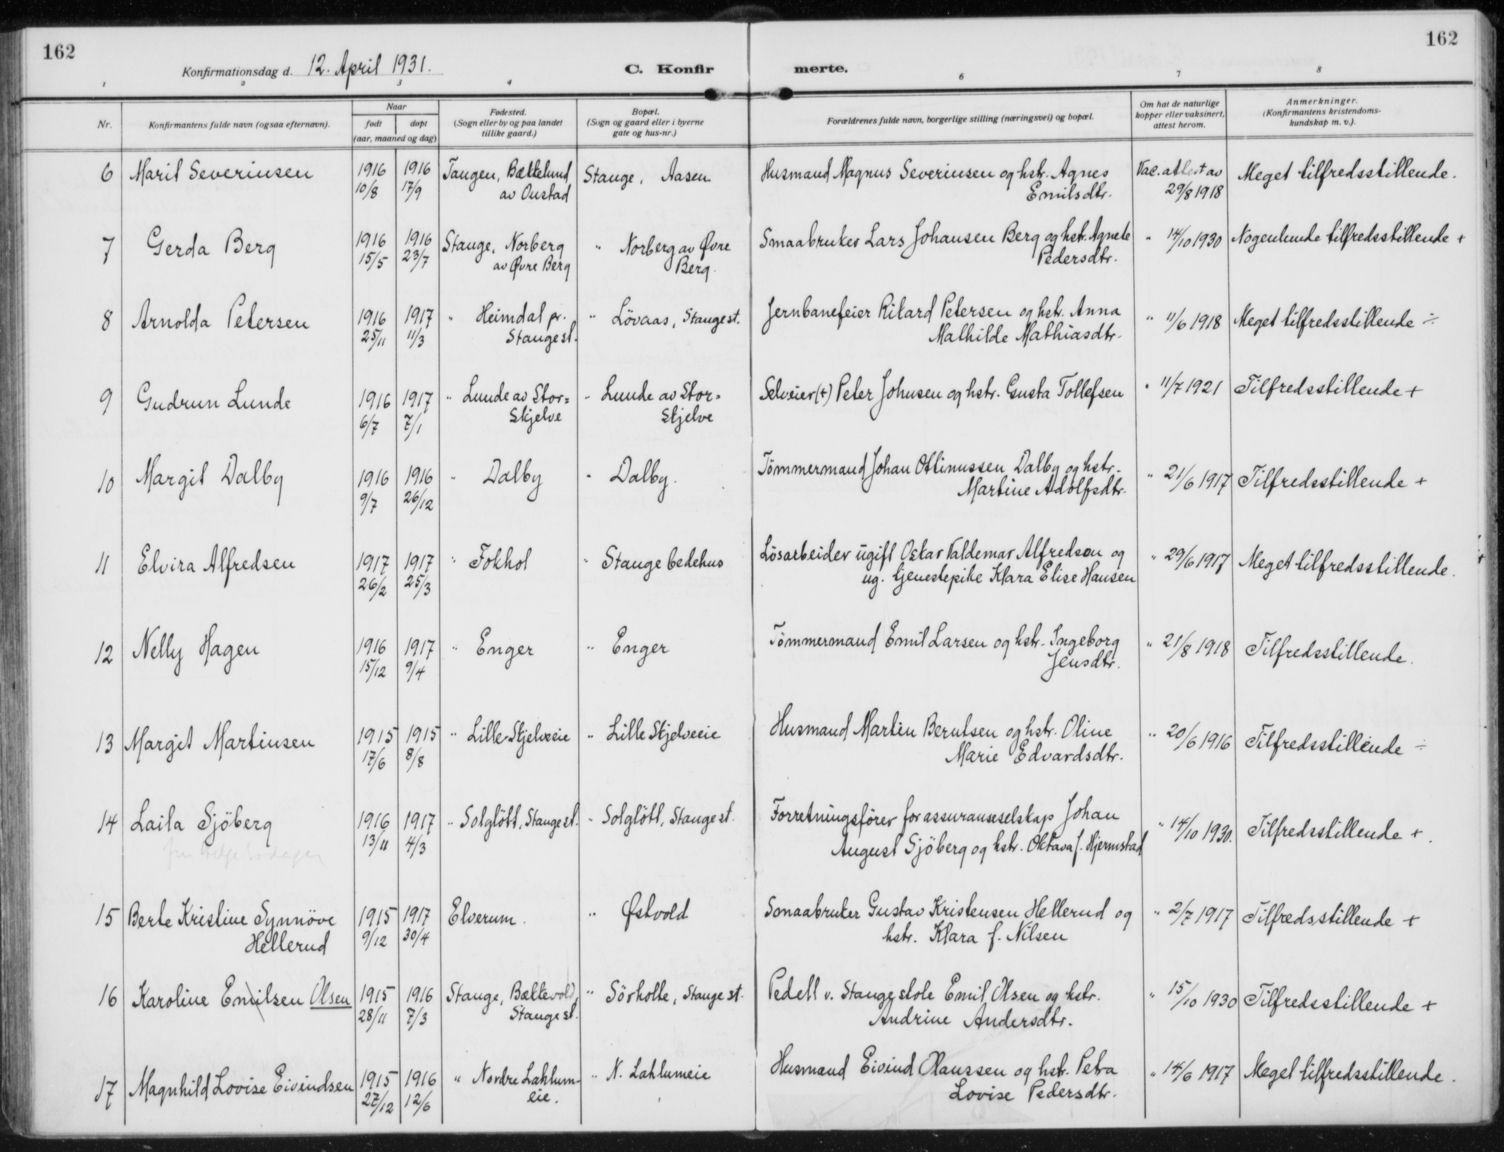 162
162
Konfirmationsdag d. 12. April 1931.
C. Konfirmerte.
1 2 3 4 6 7 8
Nr.
Konfirmantens fulde navn (ogsaa efternavn).
Naar
født
døpt
(aar, maaned og dag)
Fødested.
(Sogn eller by og paa landet
tillike gaard.)
Bopæl.
(Sogn og gaard eller i byerne
gate og hus-nr.)
Forældrenes fulde navn, borgerlige stilling (næringsvei) og bopæl.
Om hat de naturlige
kopper eller vaksinert,
attest herom.
Anmerkninger.
(Konfirmantens kristendoms-
kundskap m. v.).
6 Marit Severinsen 1916 10/8 1916 17/9 Tangen, Bækkelund
av Oustad
Stange, Aasen
Husmand Magnus Severinsen og hstr. Agnes
Emilsdtr.
Vac. attest av
29/8 1918
Meget tilfredsstillende.
7 Gerda Berg 1916 15/5 1916 23/7 Stange, Norberg
av Øvre Berg
" Norberg av Øvre
Berg.
Smaabruker Lars Johansen Berg og hstr. Agnete
Pedersdtr.
" 14/10 1930 Nogenlunde tilfredsstillende +
8 Arnolda Petersen 1916 25/11 1917 11/3 " Heimdal pr.
Stange st.
" Lövaas, Stange st.
Jernbanefeier Rikard Petersen og hstr. Anna
Mathilde Mathiasdtr.
" 11/6 1918 Meget tilfredsstillende ÷
9 Gudrun Lunde 1916 6/7 1917 7/1 " Lunde av Stor=
Skjelve
" Lunde av Stor=
Skjelve
Selveier (+) Peter Johnsen og hstr. Gusta Tollefsen
" 11/7 1921 Tilfredsstillende +
10 Margit Dalby 1916 9/7 1916 26/12 " Dalby
" Dalby.
Tömmermand Johan Ottinussen Dalby og hstr.
Martine Adolfsdtr.
" 21/6 1917 Tilfredsstillende +
11 Elvira Alfredsen 1917 26/2 1917 25/3 " Fokhol
" Stange bedehus
Lösarbeider ugift Oskar Valdemar Alfredsen og
ug. tjenestepike Klara Elise Hansen
" 29/6 1917 Meget tilfredsstillende.
12 Nelly Hagen 1916 15/12 1917 9/4 " Enger
" Enger
Tömmermand Emil Larsen og hstr. Ingeborg
Jensdtr.
" 21/8 1918 Tilfredsstillende.
13 Margit Martinsen 1915 17/6 1915 8/8 " Lille Skjelveeie
" Lille Skjelveeie
Husmand Martin Berntsen og hstr. Oline
Marie Edvardsdtr.
" 20/6 1916 Tilfredsstillende ÷
14 Laila Sjöberg 1916 13/11 1917 4/3 " Solglött, Stange st.
" Solglött, Stange st.
Forretningsförer for assuranseselskap Johan
August Sjöberg og hstr. Oktava f. Hjermstad
" 14/10 1930. Tilfredsstillende +.
15 Berte Kristine Synnöve
Hellerud
1915 9/12 1917 30/4 Elverum.
" Østvold
Smaabruker Gustav Kristensen Hellerud og
hstr. Klara f. Nilsen
" 2/7 1917 Tilfredsstillende +
16 Karoline Emilsen Olsen 1915 28/11 1916 7/3 Stange, Bækkevold,
Stange st.
" Sörholte, Stange st.
Pedell v. Stange skole Emil Olsen og hstr.
Andrine Andersdtr.
" 15/10 1930 Tilfredsstillende +
17 Magnhild Lovise Eivindsen 1915 27/12 1916 12/6 " Nordre Laklum-
eie.
" N. Laklumeie
Husmand Eivind Olaussen og hstr. Petra
Lovise Pedersdtr.
" 14/6 1917 Meget tilfredsstillende.